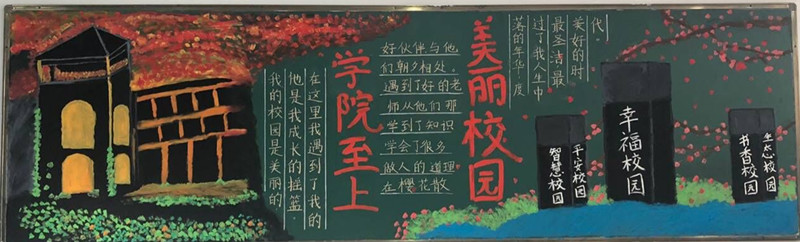 我的校园是美丽的
他是我成长的摇篮
在这里我遇到了我的
学院至上
好伙伴与他
们朝夕相处。
遇到了好的老
师从他们那
学到了知识
学会了很多
做人的道理
在樱花散
美丽校园
落的年华、度
过了我人生中
最圣洁最
美好的时
代。
智慧校园
平安校园
幸福校园
书香校园
生态校园